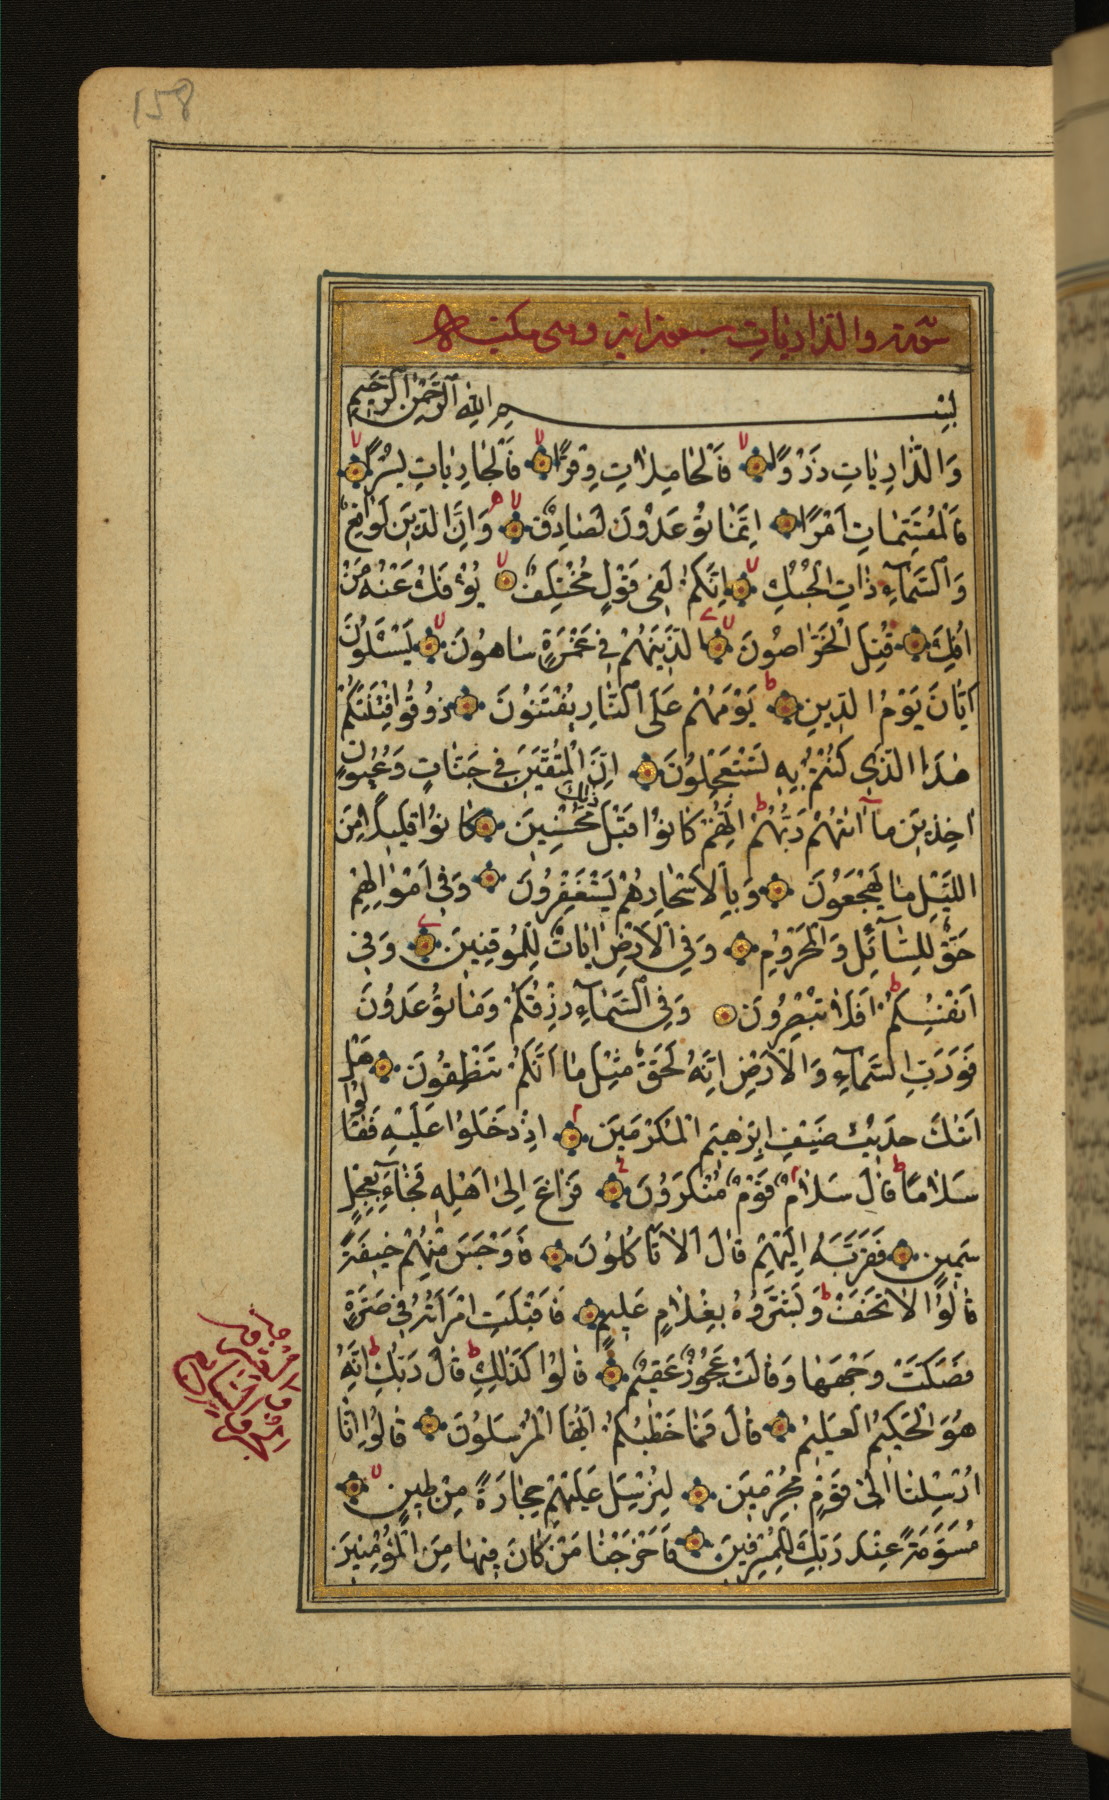 158
سورة والذاريات سبعون اية وهى مكية
بِسْمِ اللهِ الرَّحْمٰنِ الرَّحِيمِ
وَالذَّارِيَاتِ ذَرْوًا فَالْحَامِلَاتِ وِقْرًا فَالْجَارِيَاتِ يُسْرًا
فَالْمُقَسِّمَاتِ اَمْرًا اِنَّمَا تُوعَدُونَ لَصَادِقٌ وَاِنَّ الدِّينَ لَوَاقِعٌ
وَالسَّمَآءِ ذَاتِ الْحُبُكِ اِنَّكُمْ لَفِى قَوْلٍ مُخْتَلِفٍ يُؤْفَكُ عَنْهُ مَنْ
اُفِكَ قُتِلَ الْخَرَّاصُونَ الَّذِينَ هُمْ فِى غَمْرَةٍ سَاهُونَ يَسْئَلُونَ
اَيَّانَ يَوْمُ الدِّينِ يَوْمَ هُمْ عَلَى النَّارِ يُفْتَنُونَ ذُوقُوا فِتْنَتَكُمْ
هٰذَا الَّذِى كُنْتُمْ بِهِ تَسْتَعْجِلُونَ اِنَّ الْمُتَّقِينَ فِى جَنَّاتٍ وَعُيُونٍ
اٰخِذِينَ مَآ اٰتٰهُمْ رَبُّهُمْ اِنَّهُمْ كَانُوا قَبْلَ ذٰلِكَ مُحْسِنِينَ كَانُوا قَلِيلًا مِنَ
اللَّيْلِ مَا يَهْجَعُونَ وَبِالْاَسْحَارِ هُمْ يَسْتَغْفِرُونَ وَفِى اَمْوَالِهِمْ
حَقٌّ لِلسَّآئِلِ وَالْمَحْرُومِ وَفِى الْاَرْضِ اٰيَاتٌ لِلْمُوقِنِينَ وَفِى
اَنْفُسِكُمْ اَفَلَا تُبْصِرُونَ وَفِى السَّمَآءِ رِزْقُكُمْ وَمَا تُوعَدُونَ
فَوَرَبِّ السَّمَآءِ وَالْاَرْضِ اِنَّهُ لَحَقٌّ مِثْلَ مَا اَنَّكُمْ تَنْطِقُونَ هَلْ
اَتٰكَ حَدِيثُ ضَيْفِ اِبْرٰهِيمَ الْمُكْرَمِينَ اِذْ دَخَلُوا عَلَيْهِ فَقَالُوا
سَلَامًا قَالَ سَلَامٌ قَوْمٌ مُنْكَرُونَ فَرَاغَ اِلٰى اَهْلِهِ فَجَآءَ بِعِجْلٍ
سَمِينٍ فَقَرَّبَهُ اِلَيْهِمْ قَالَ اَلَا تَاْكُلُونَ فَاَوْجَسَ مِنْهُمْ خِيفَةً
قَالُوا لَا تَخَفْ وَبَشَّرُوهُ بِغُلَامٍ عَلِيمٍ فَاَقْبَلَتِ امْرَاَتُهُ فِى صَرَّةٍ
فَصَكَّتْ وَجْهَهَا وَقَالَتْ عَجُوزٌ عَقِيمٌ قَالُوا كَذٰلِكِ قَالَ رَبُّكِ اِنَّهُ
هُوَ الْحَكِيمُ الْعَلِيمُ قَالَ فَمَا خَطْبُكُمْ اَيُّهَا الْمُرْسَلُونَ قَالُوا اِنَّا
اُرْسِلْنَا اِلٰى قَوْمٍ مُجْرِمِينَ لِنُرْسِلَ عَلَيْهِمْ حِجَارَةً مِنْ طِينٍ
مُسَوَّمَةً عِنْدَ رَبِّكَ لِلْمُسْرِفِينَ فَاَخْرَجْنَا مَنْ كَانَ فِيهَا مِنَ الْمُؤْمِنِينَ